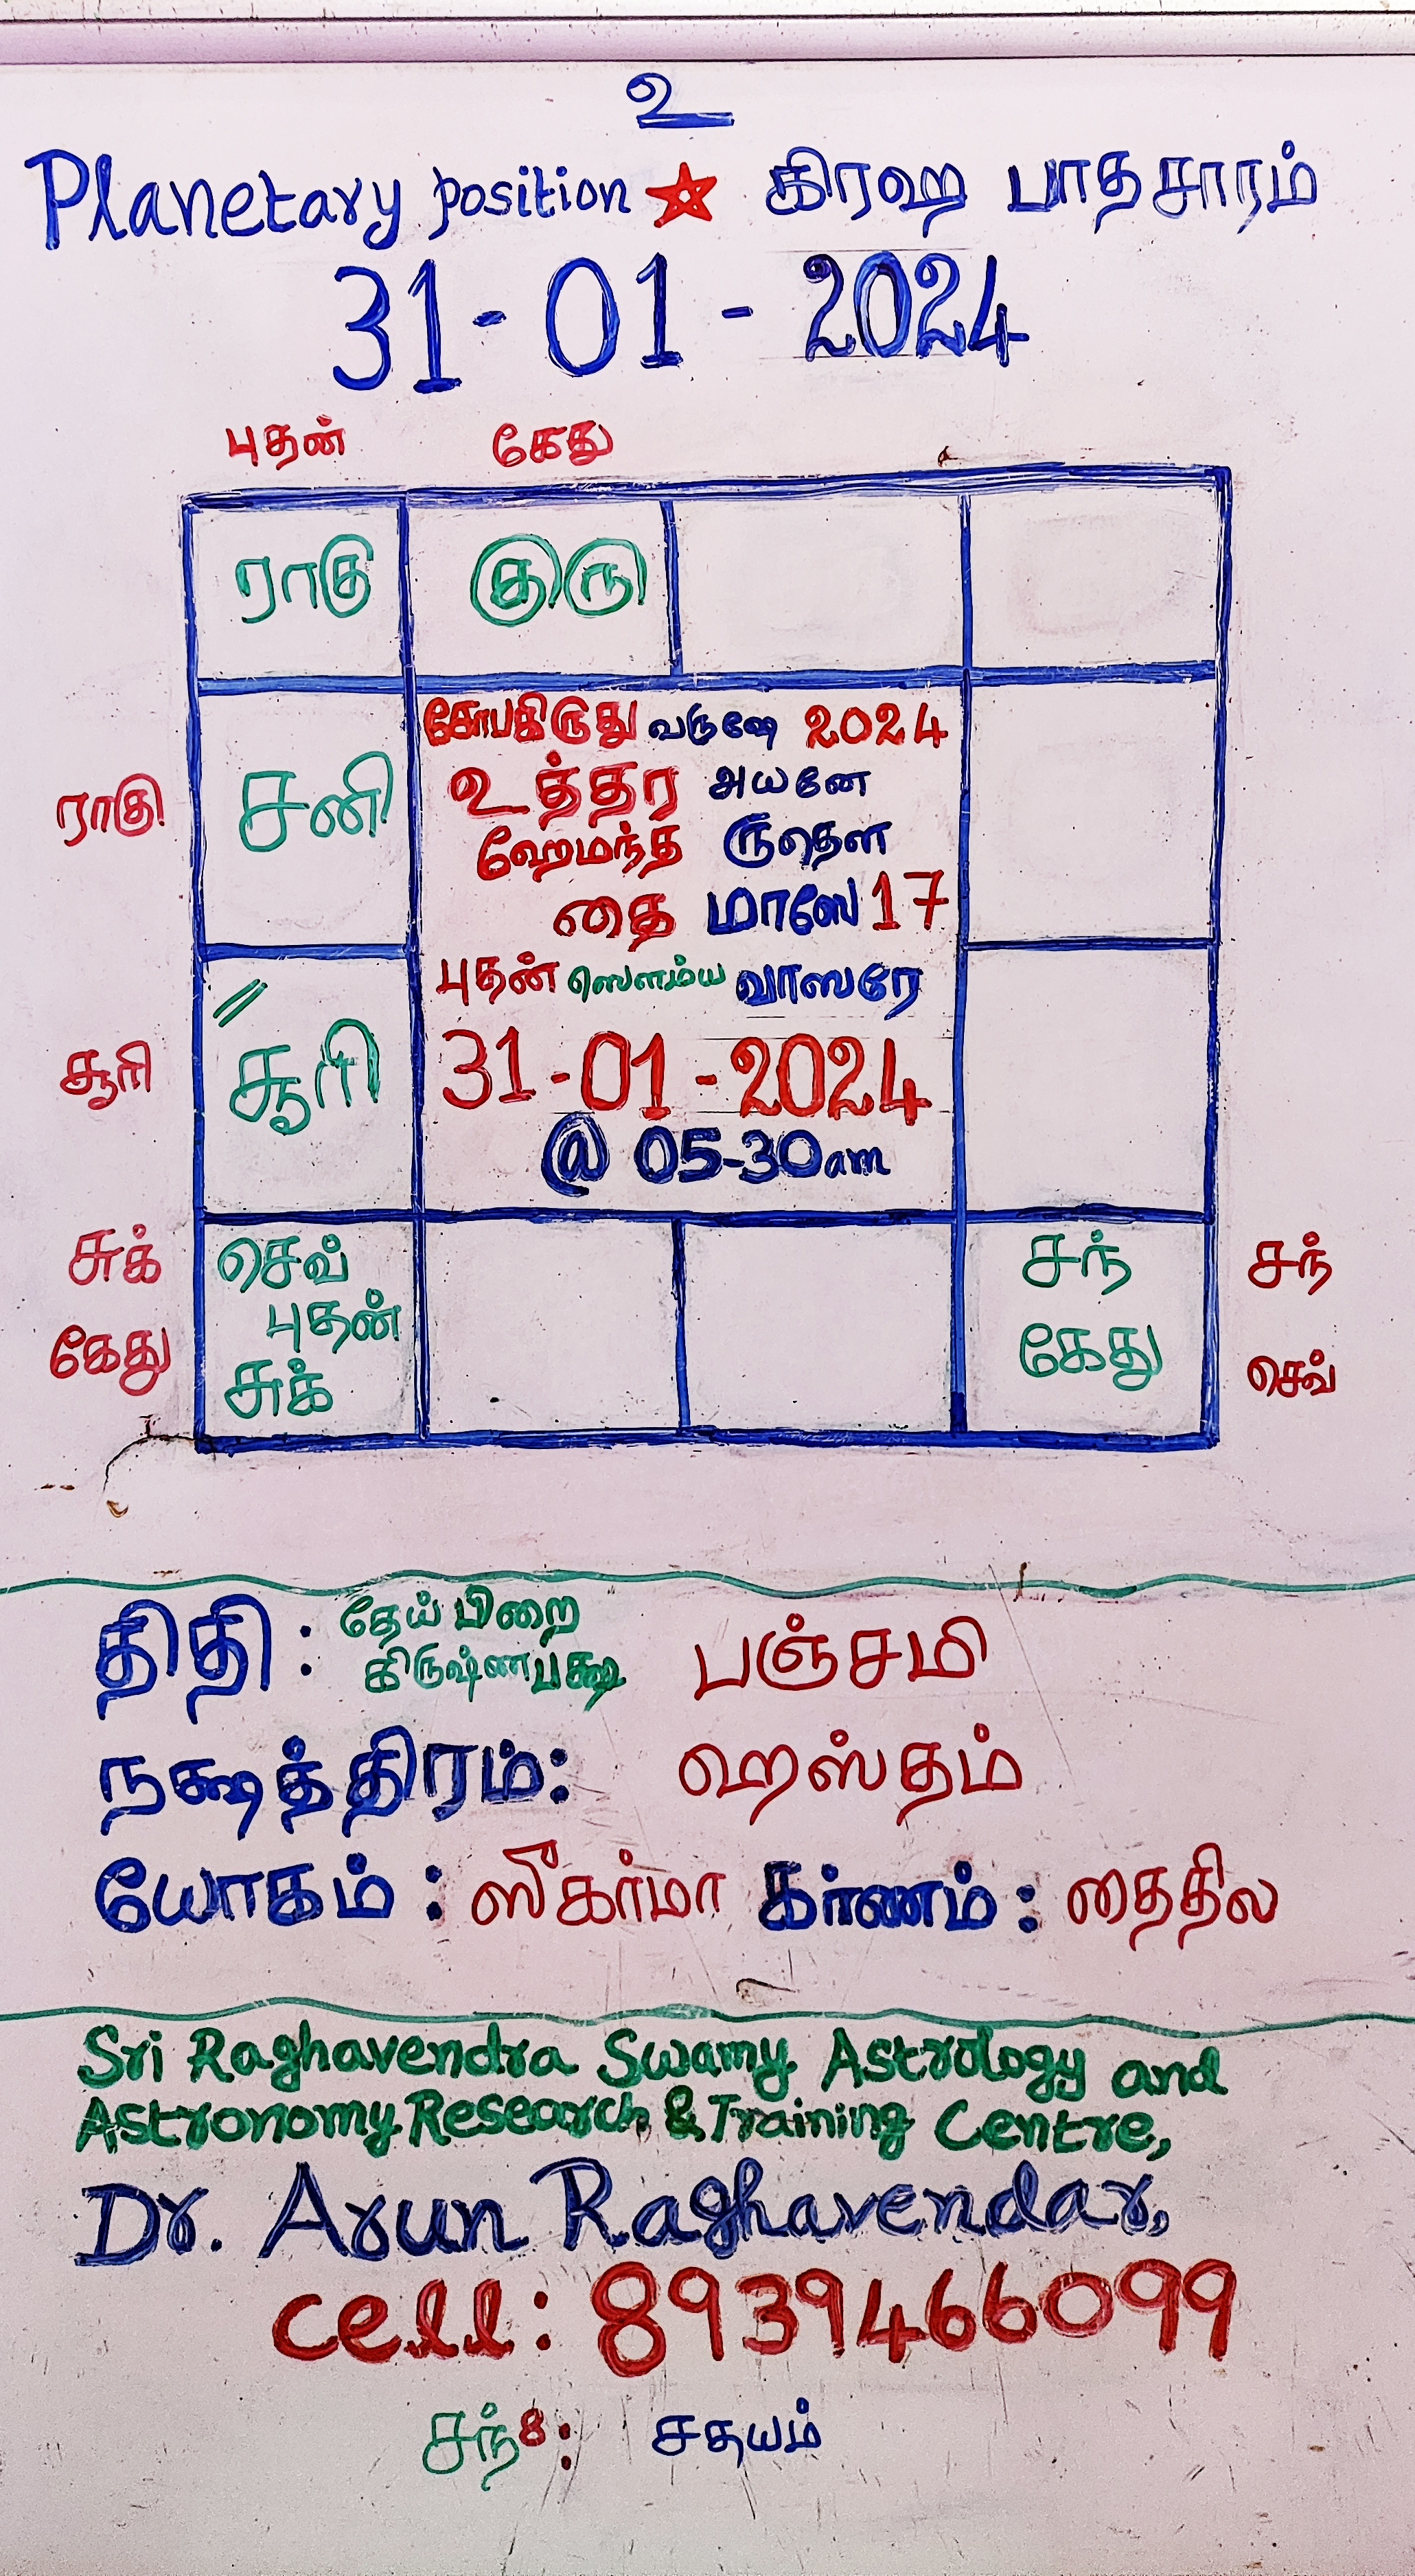 உ
Planetary position ☆ கிரஹ பாதசாரம்
31-01-2024
புதன் கேது
ராகு குரு
சோபகிருது வருஷே 2024
உத்தர அயனே
ராகு சனி
ஹேமந்த ருதௌ
தை மாஸே 17
புதன் ஸௌம்ய வாஸரே
சூரி சூரி
31-01-2024
@ 05-30am
சுக் செவ் சந் சந்
புதன்
கேது சுக் கேது செவ்
திதி : தேய் பிறை பஞ்சமி
கிருஷ்ணபக்ஷ
நக்ஷத்திரம்: ஹஸ்தம்
யோகம் : ஸுகர்மா கர்ணம் : தைதில
Sri Raghavendra Swamy Astrology and
Astronomy Research & Training Centre,
Dr. Arun Raghavendar,
cell: 8939466099
சந்8: சதயம்